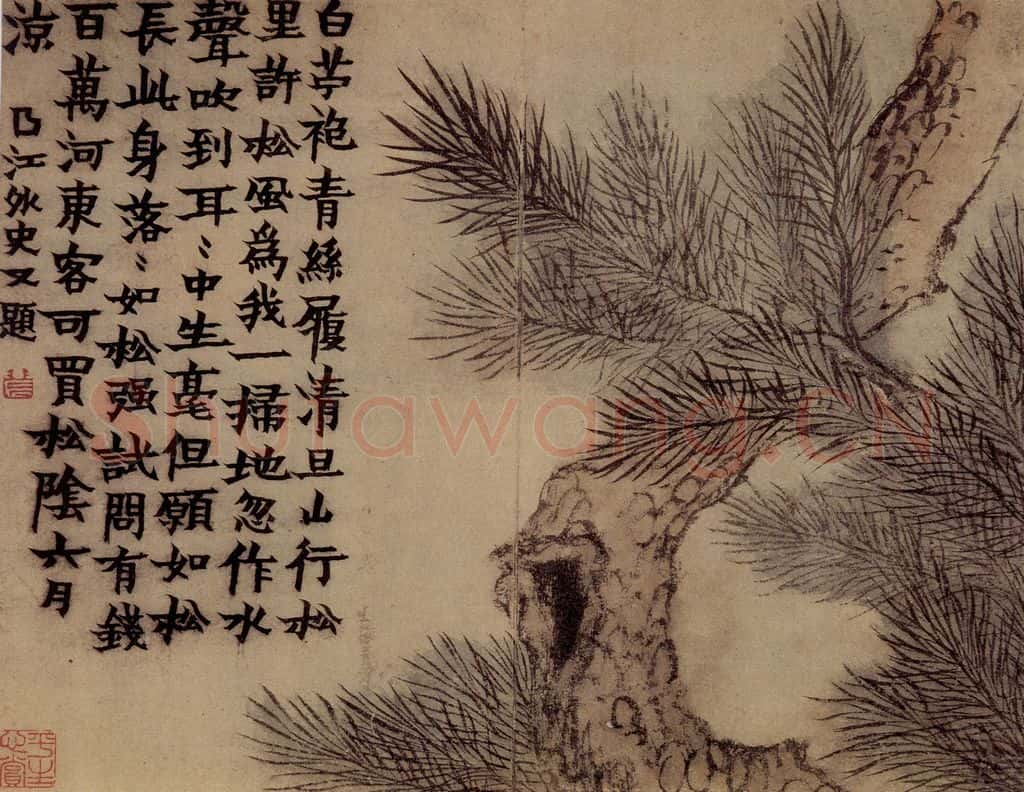 白苧袍青絲履清旦山行松
里許松風爲我一掃地忽作水
聲吹到耳〻中生毫但願如松
長此身落〻如松强試問有錢
百萬河東客可買松陰六月
涼
曲江外史又題
平生心賞
Shufawang.CN